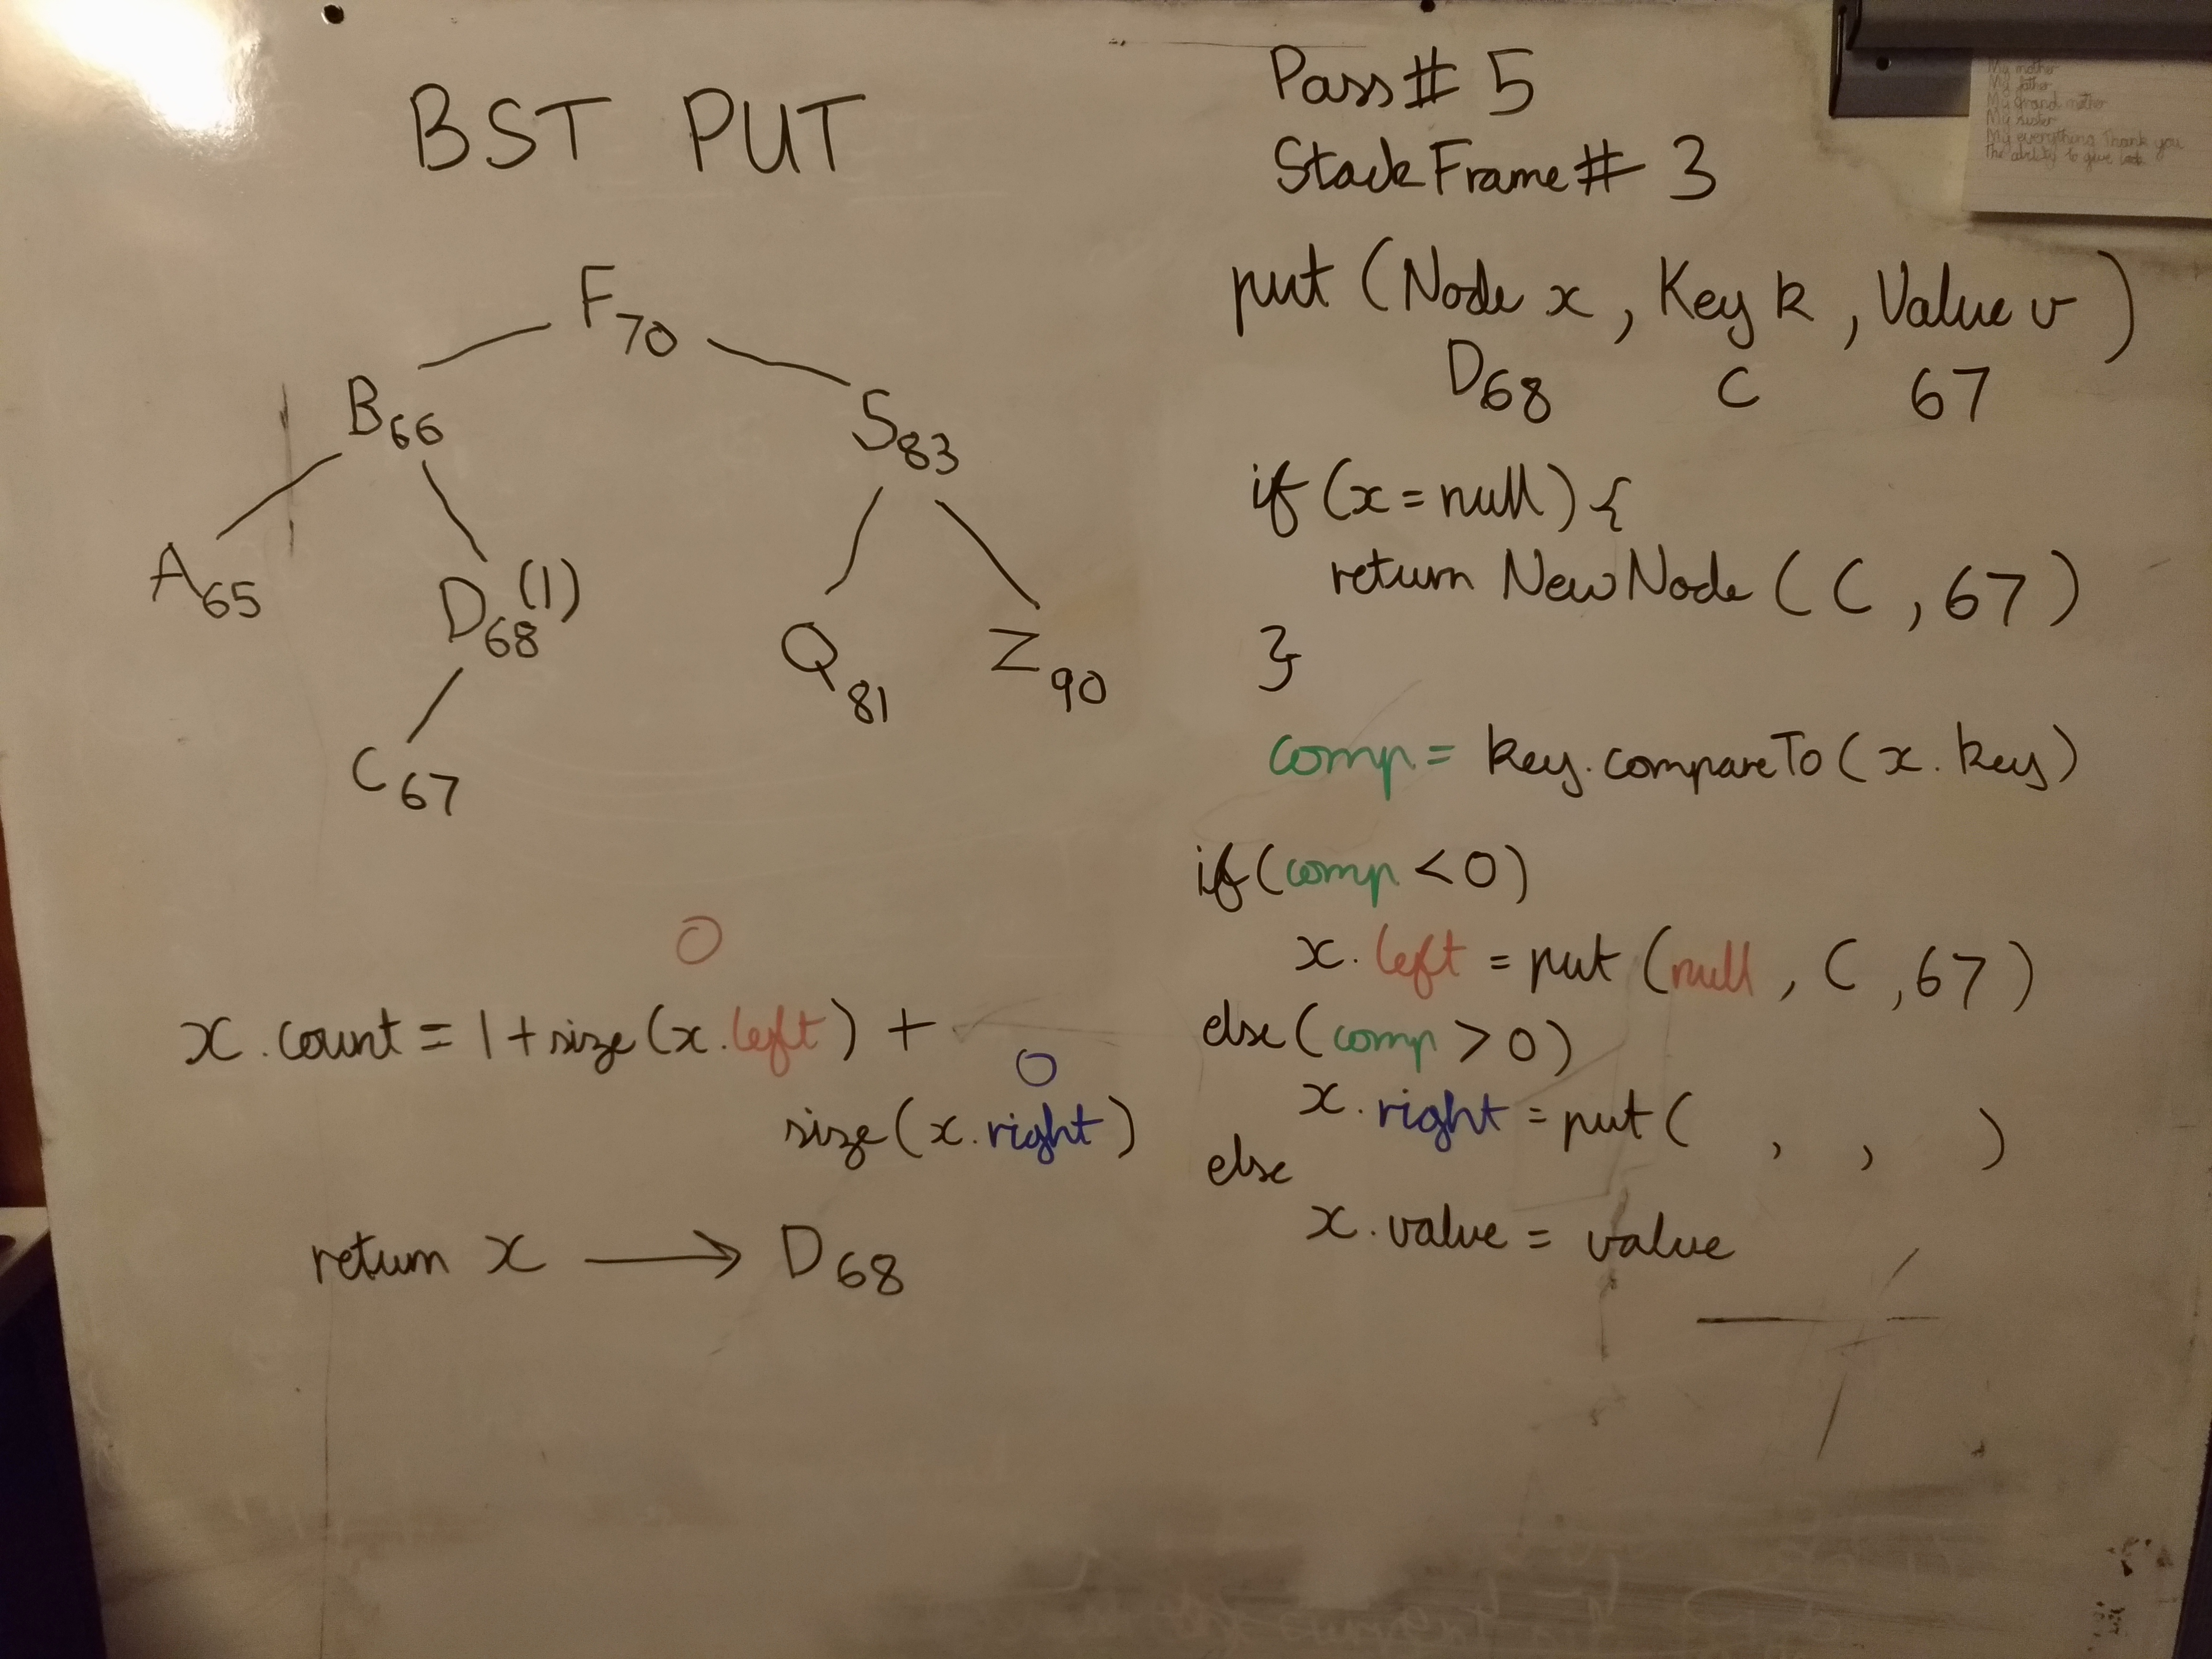 BST PUT
F70
B66
S83
A65
D68 (1)
Q81
Z90
C67
0
x.count = 1+size(x.left) +
0
size(x.right)
return x → D68
Pass# 5
StackFrame# 3
put (Node x, Key k, Value v)
D68 C 67
if (x=null) {
return NewNode (C, 67)
}
comp = key.compareTo(x.key)
if(comp <0)
x.left = put (null, C, 67)
else(comp >0)
x.right = put( , , )
else
x.value = value
My mother
My father
My grand mother
My sister
My everything Thank you
The ability to give